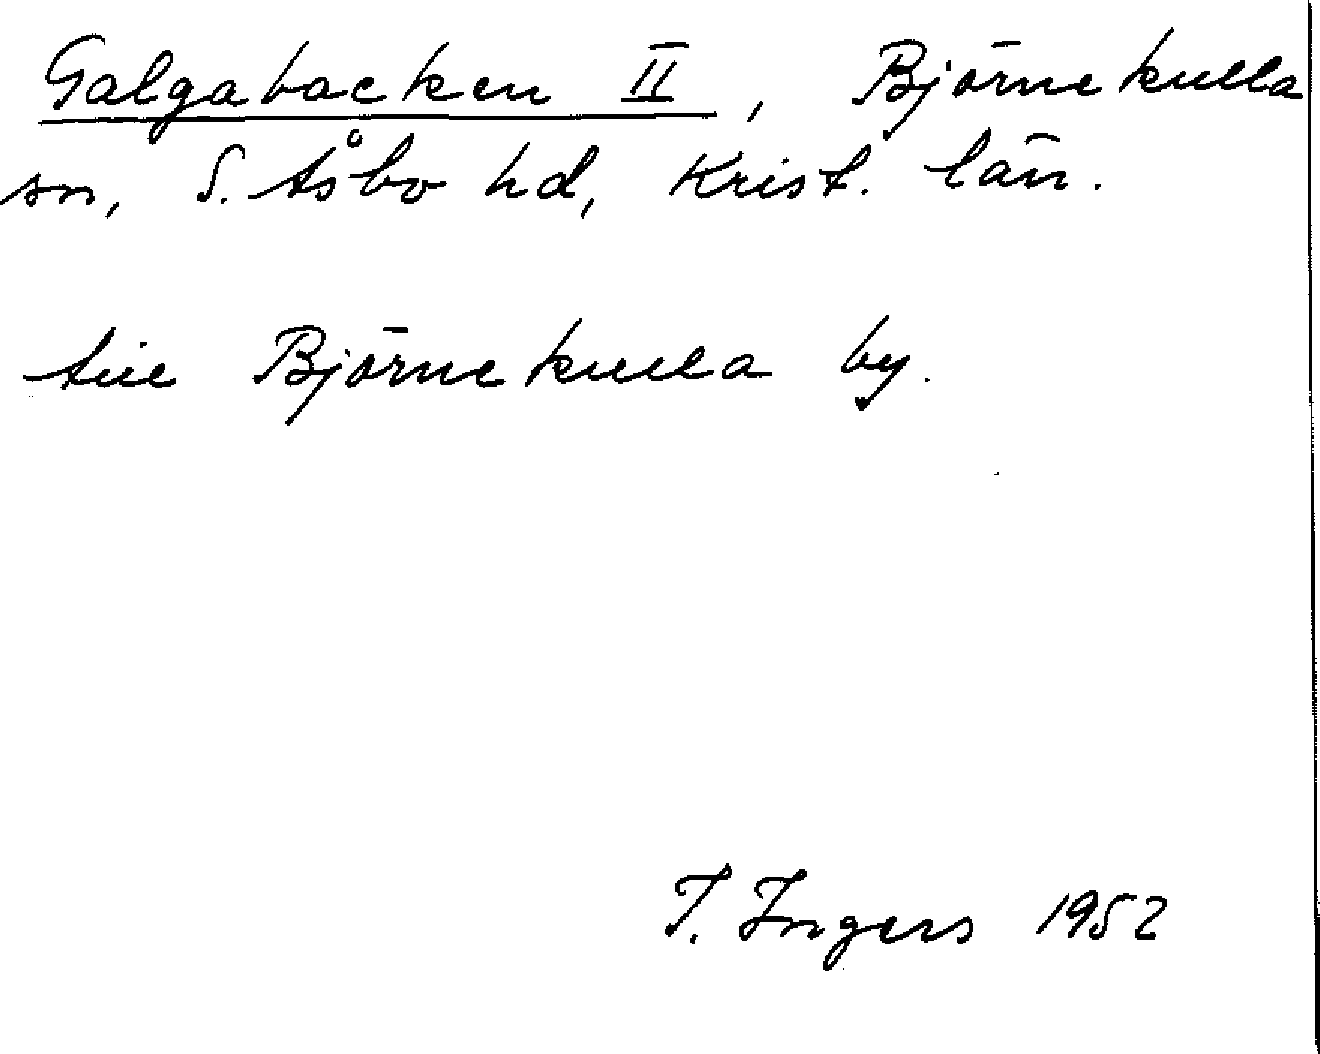 Galgabacken II, Björnekulla
sn, S. Åsbo hd, Krist. län.
till Björnekulla by.
I. Ingers 1952